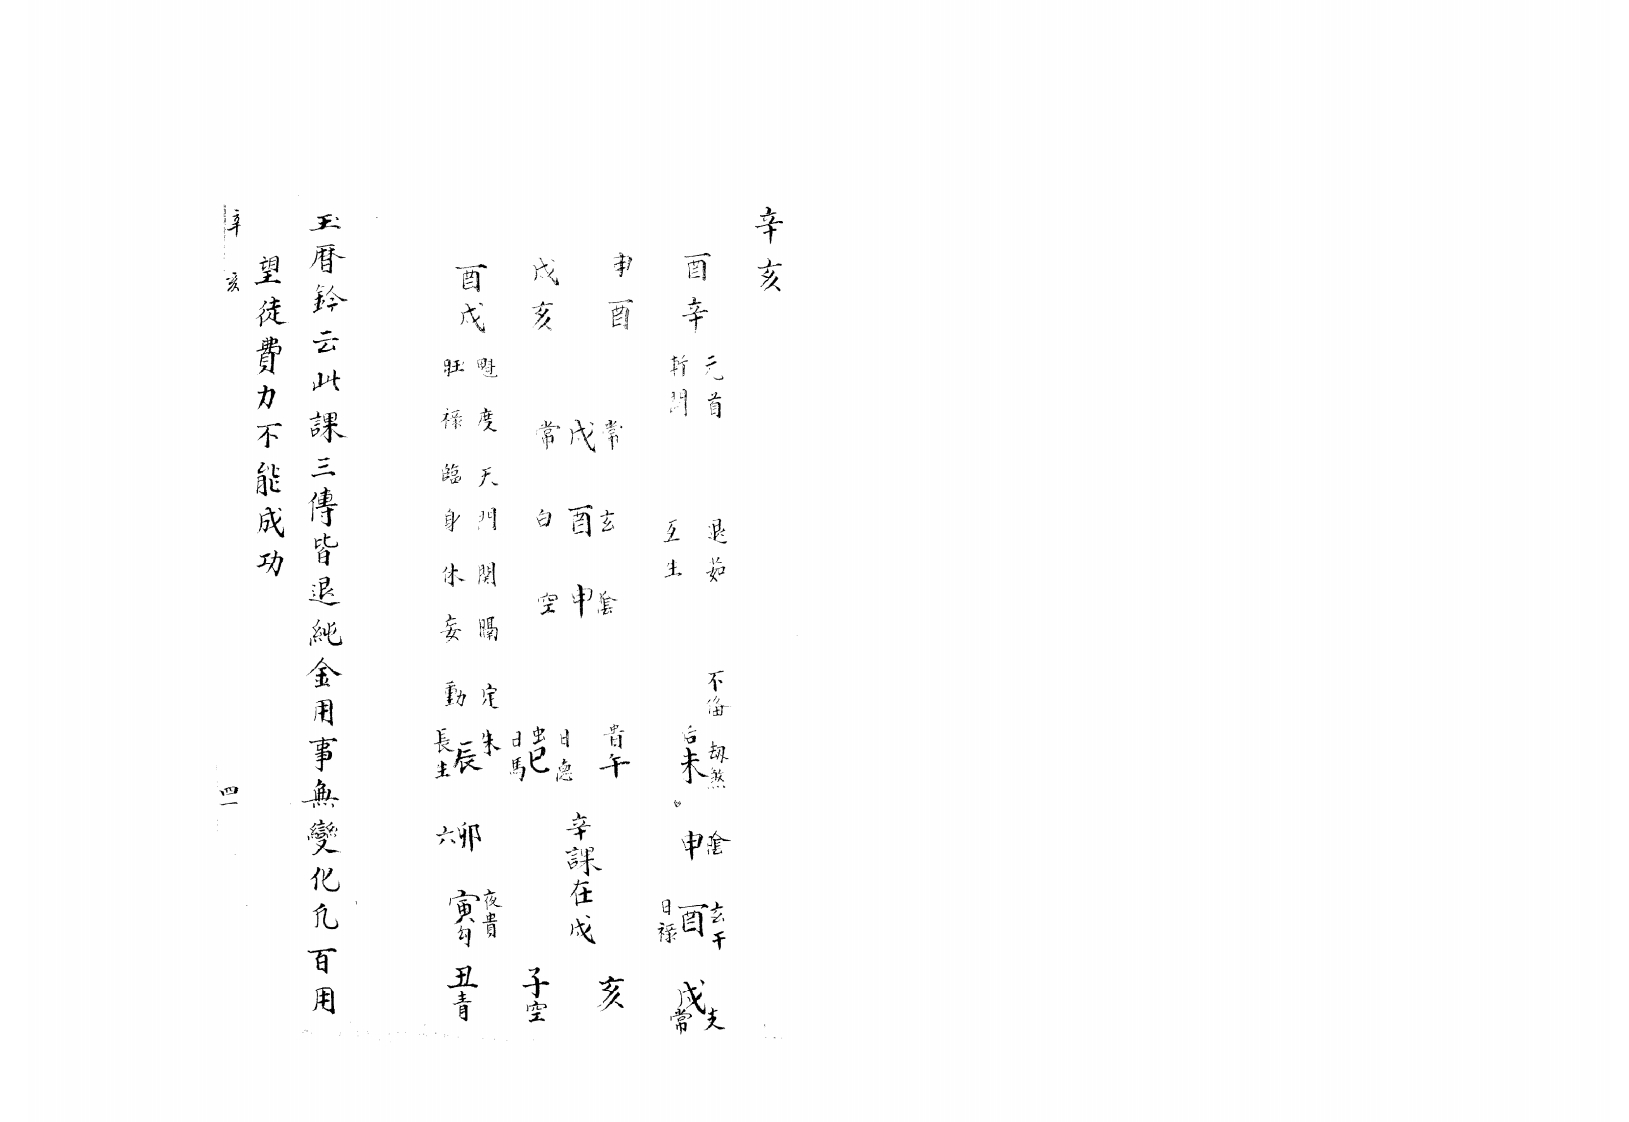 辛亥
酉辛
申酉
戌亥
酉戌
元首
斬關
退茹
互生
不備
常戌常
玄酉白
陰申空
魁度天門關隔定
旺祿臨身休妄動
劫煞
后未
陰申
玄干酉日祿
戌常支
貴午
日德
虫巳
日馬
朱辰長生
卯六
夜貴寅勾
丑青
子空
亥
辛課在戌
玉曆鈐云此課三傳皆退純金用事無變化凡百用
望徒費力不能成功
辛亥
四一